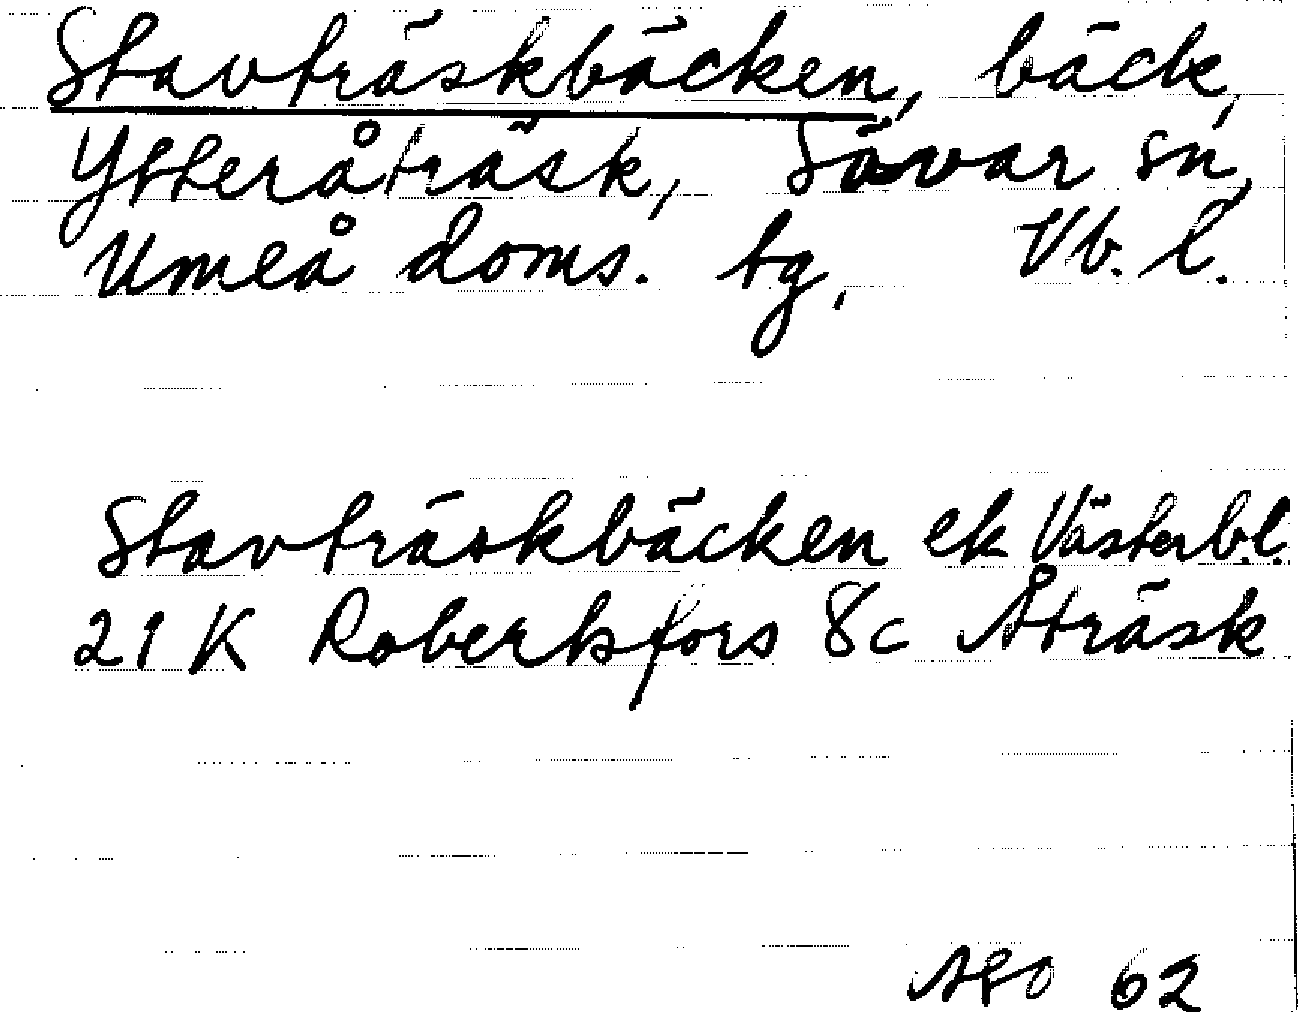 Stavträskbäcken, bäck,
Ytteråträsk, Sävar sn,
Umeå doms. tg, Vb. l.
Stavträskbäcken ek Västerb.l.
21 K Robertsfors 8c Åträsk
62